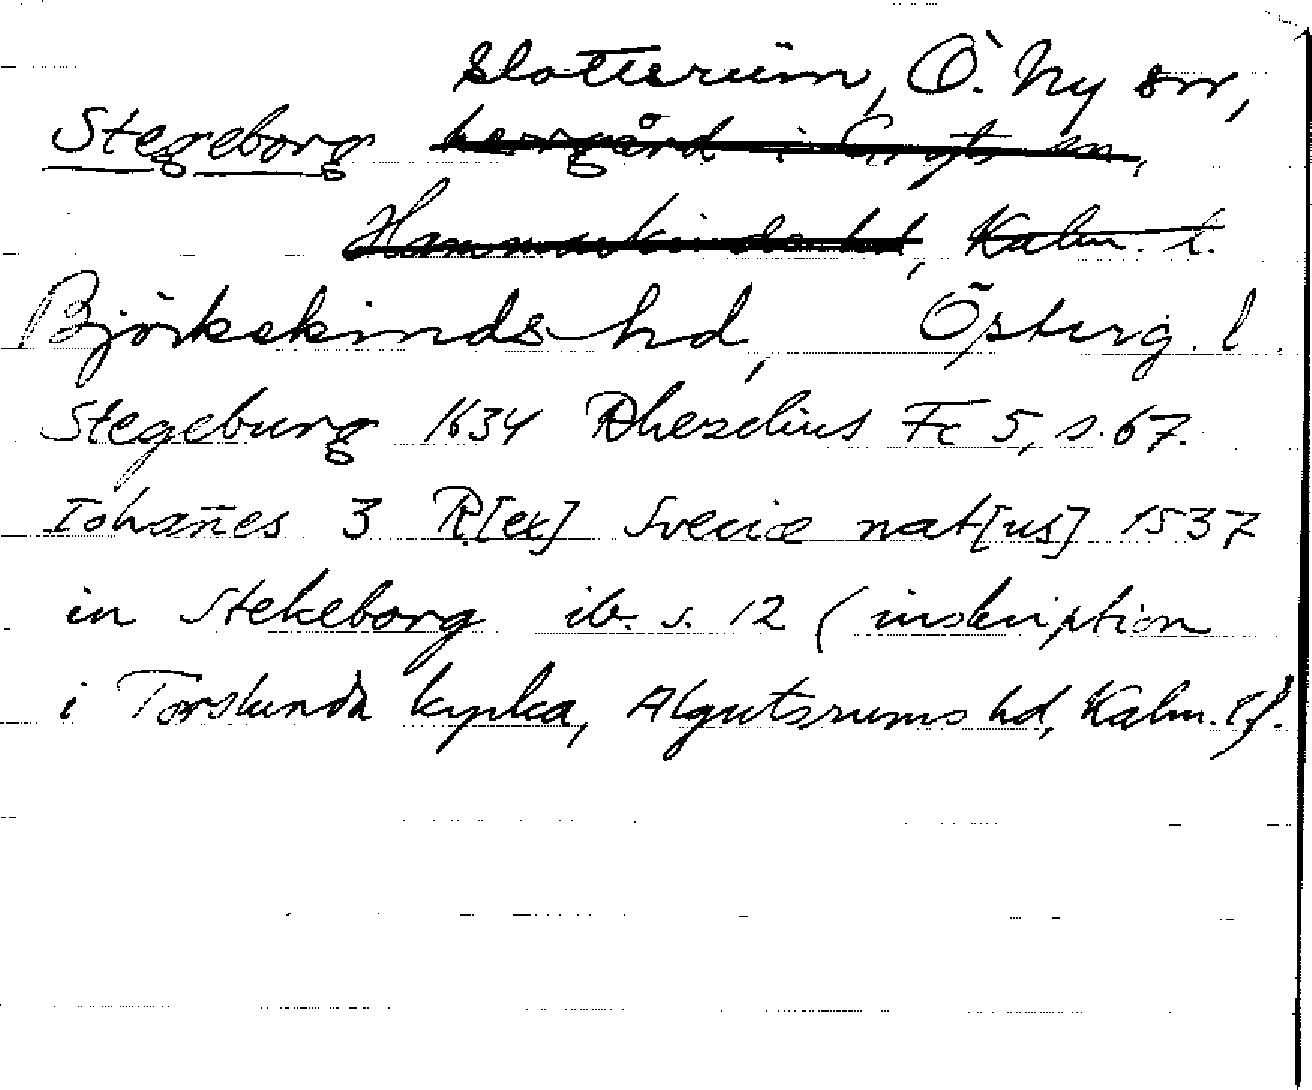 slottsruin, Ö. Ny sn,
Stegeborg herrgård i sn,
Hammarkinds hd, Kalm. l.
Björkekinds hd, Österg. l.
Stegeburg 1634 Rhezelius Fc 5, s. 67.
Iohan̄es 3 R[ex] Sveciæ nat[us] 1537
in Stekeborg ib. s. 12 (inskription
i Torslunda kyrka, Algutsrums hd, Kalm. l).